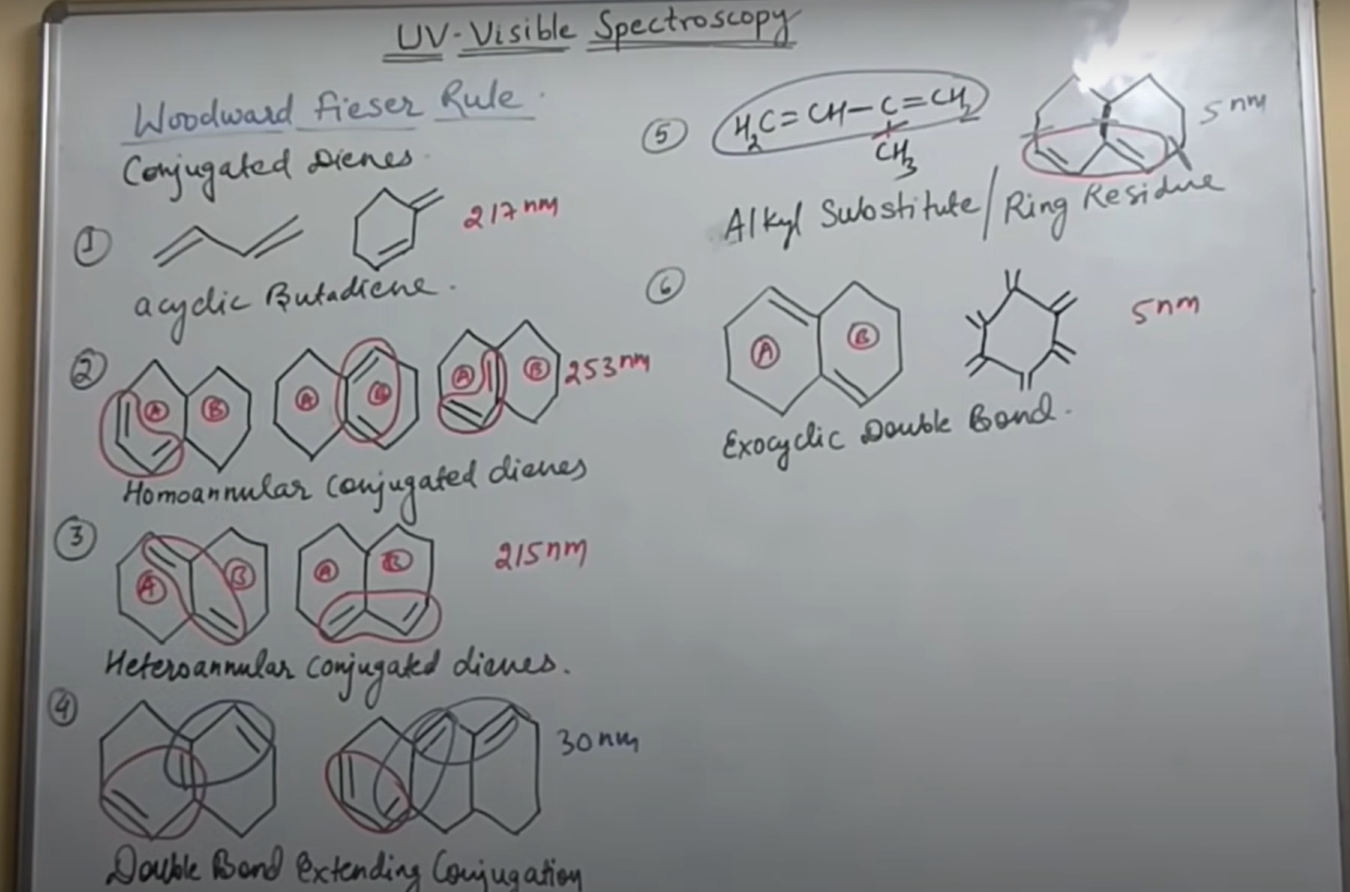 UV-Visible Spectroscopy
Woodward Fieser Rule.
Conjugated Dienes.
① 217 nm
acyclic Butadiene.
② A B A B A B 253 nm
Homoannular conjugated dienes
③ A B A B 215 nm
Heteroannular conjugated dienes.
④ 30 nm
Double Bond Extending Conjugation
⑤ H₂C=CH-C=CH₂ 5 nm
CH₃
Alkyl Substitute/Ring Residue
⑥ A B 5 nm
Exocyclic Double Bond.